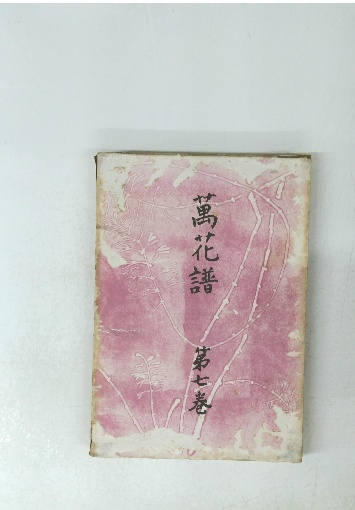 萬花譜 第七巻